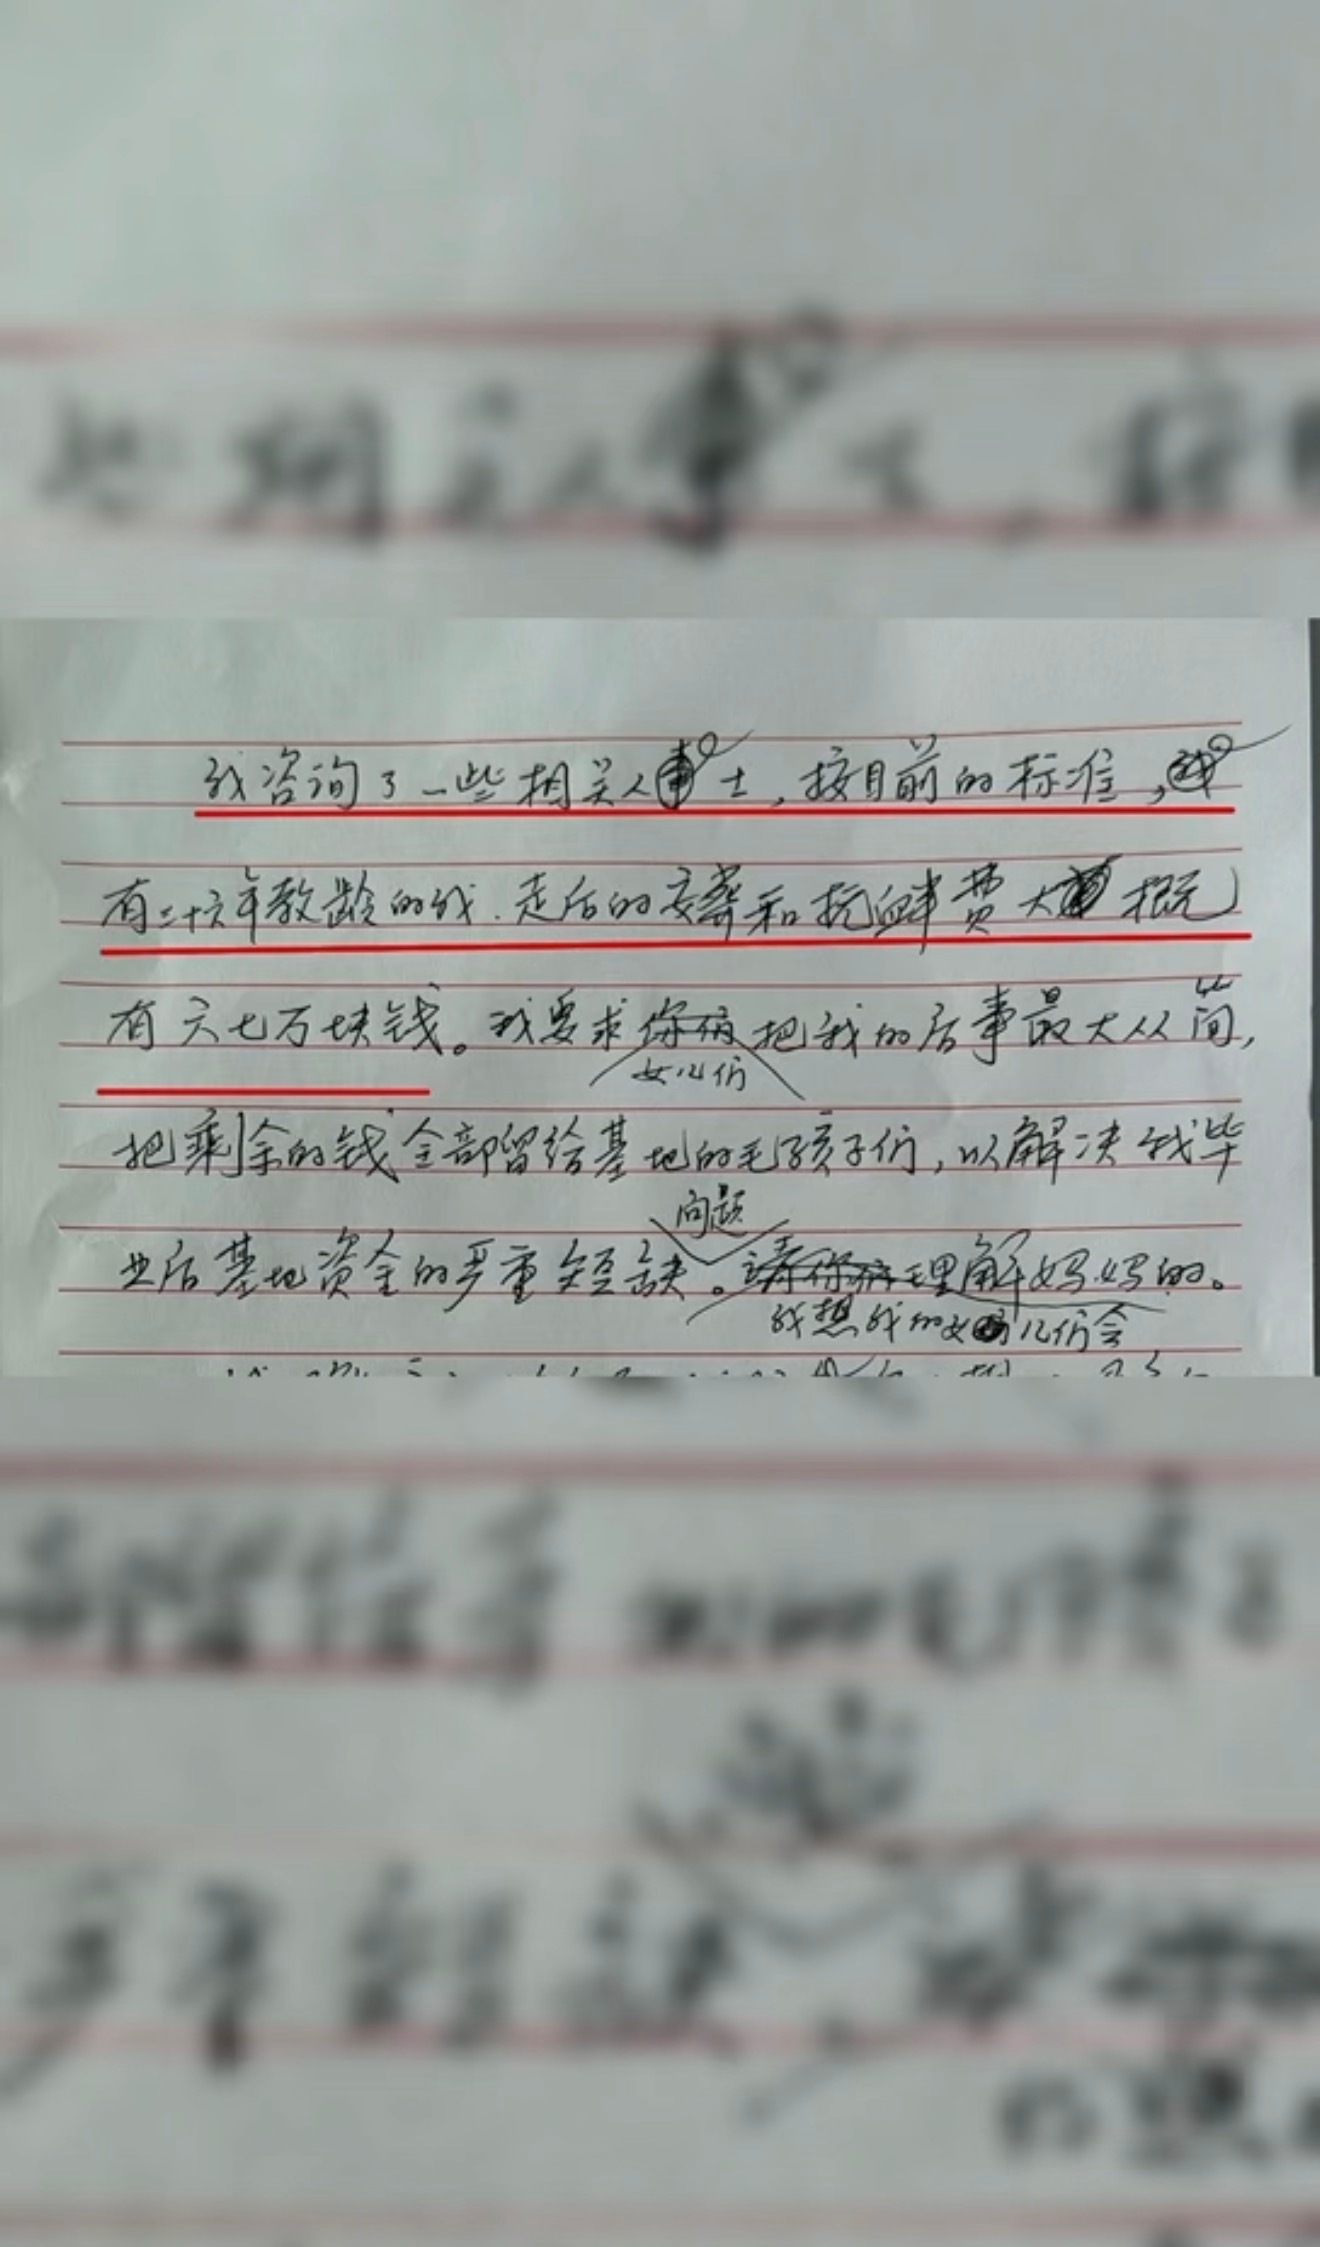 我咨询了一些相关人士，按目前的标准，
有二十六年教龄的我．走后的安葬和抚恤费大概
有六七万块钱。我要求你俩把我的后事最大从简，
女儿们
把剩余的钱全部留给基地的毛孩子们，以解决我毕
问题
业后基地资金的严重短缺。请你俩理解妈妈的。
我想我的女儿们会